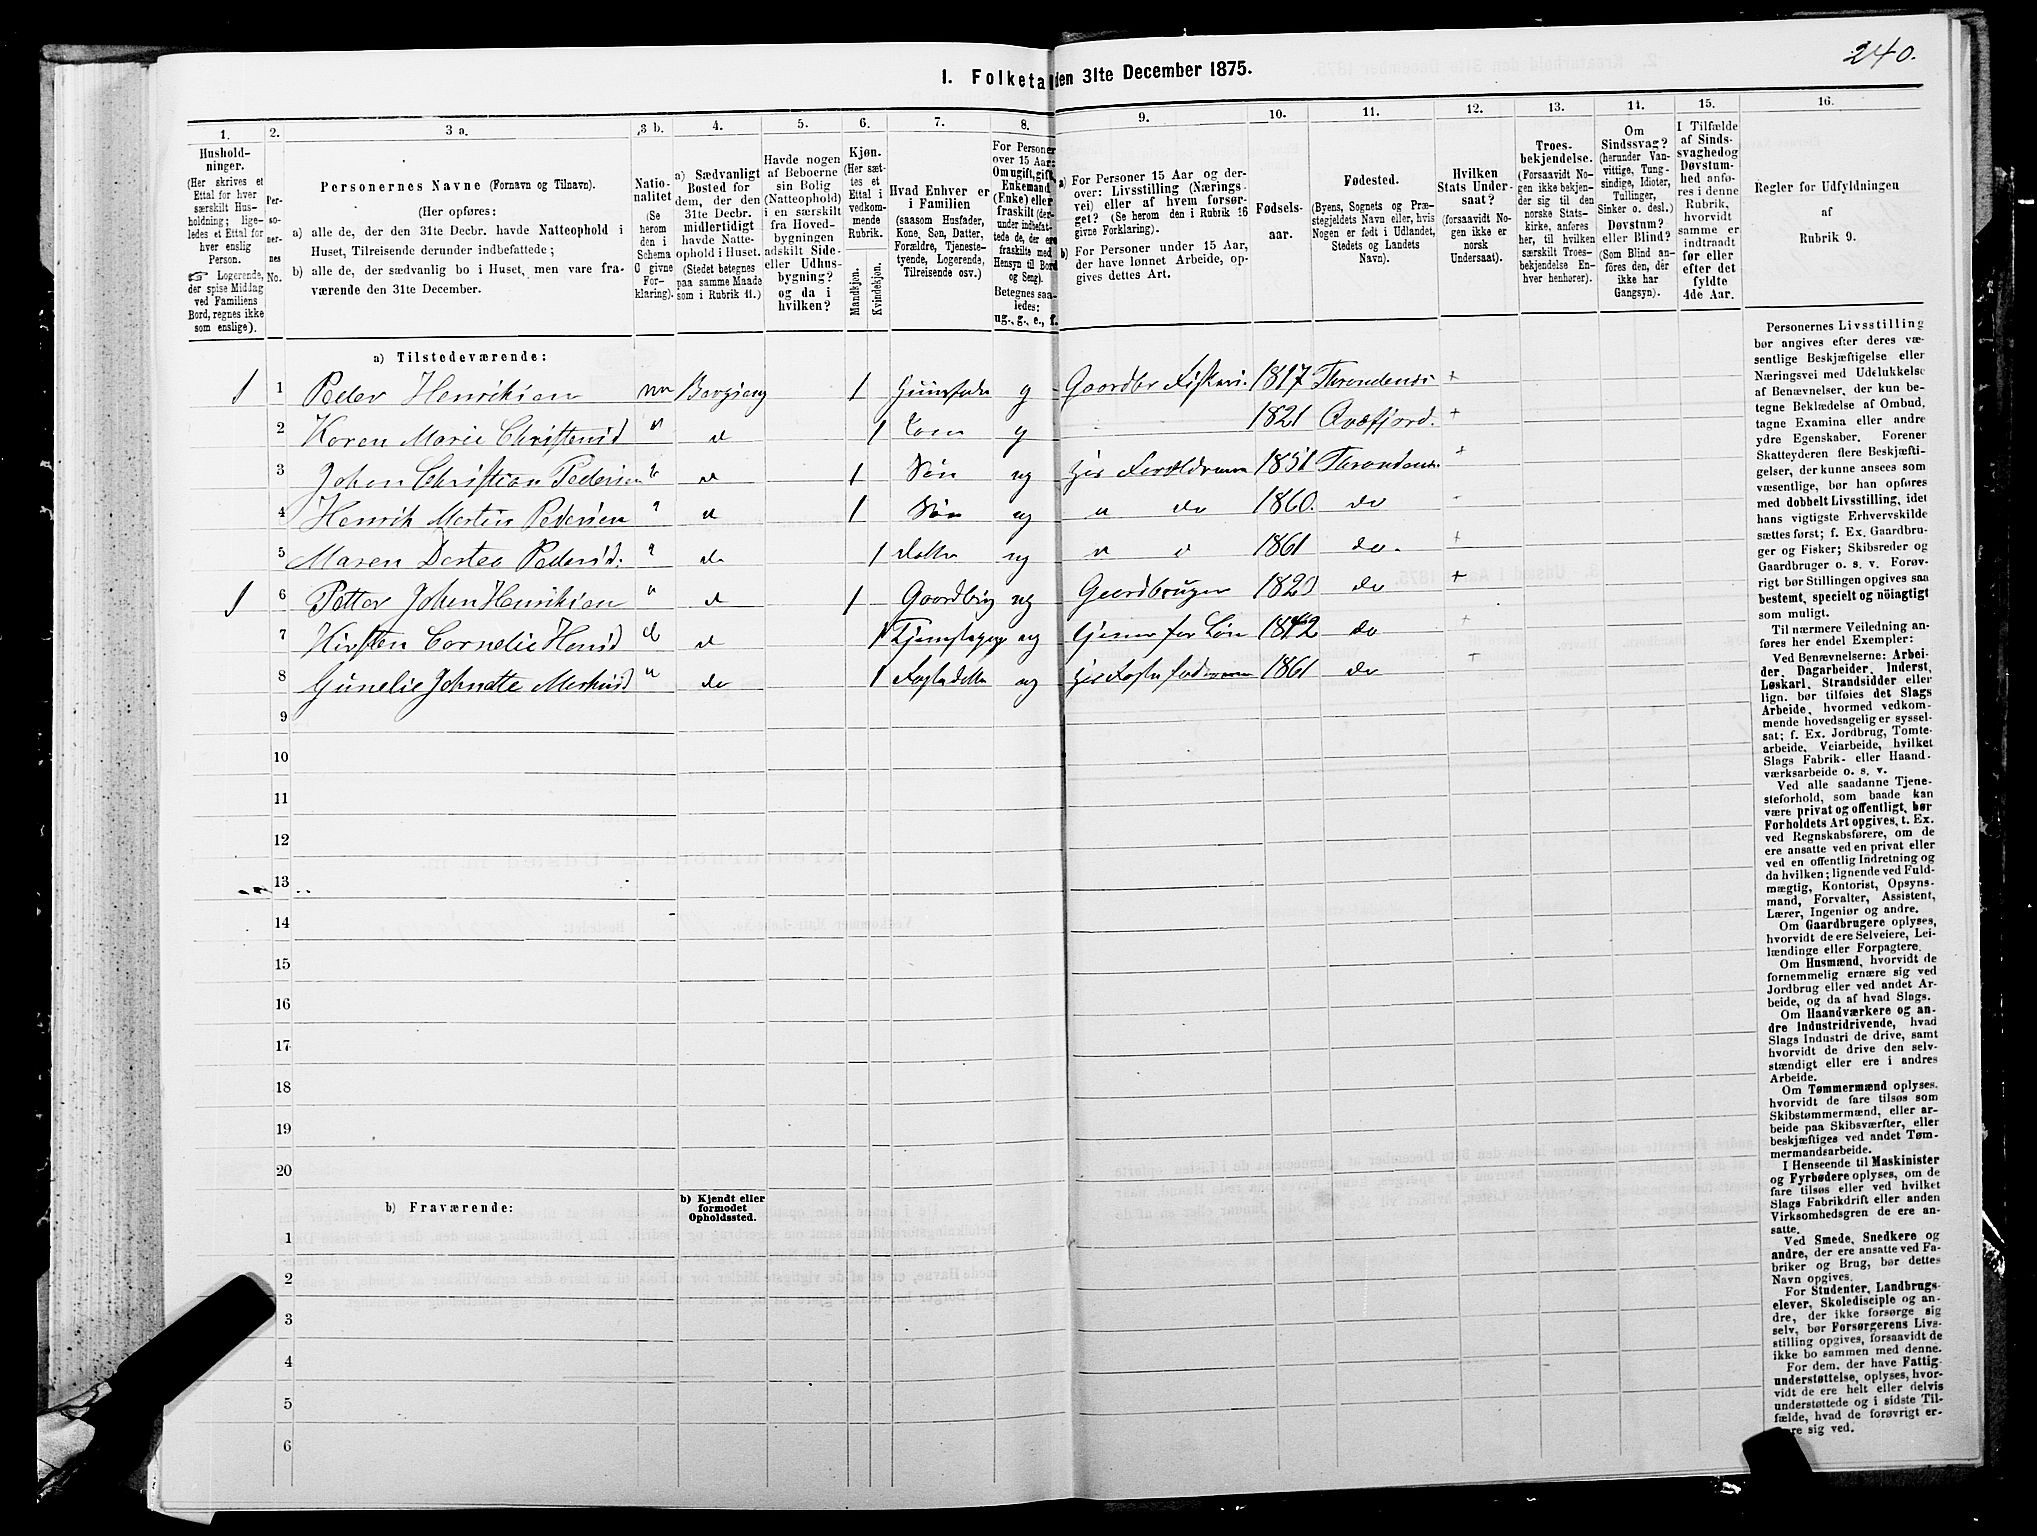 240.
1. Folketal den 31te December 1875.
1. 2. 3 a. 3 b. 4. 5. 6. 7. 8. 9. 10. 11. 12. 13. 14. 15. 16.
Hushold-
ninger.
(Her skrives et
Ettal for hver
særskilt Hus-
holdning; lige-
ledes et Ettal for
hver enslig
Person.
☞ Logerende,
der spise Middag
ved Familiens
Bord, regnes ikke
som enslige).
Per-
so-
ner-
nes
No.
Personernes Navne (Fornavn og Tilnavn).
(Her opføres:
a) alle de, der den 31te Decbr. havde Natteophold i
Huset, Tilreisende derunder indbefattede;
b) alle de, der sædvanlig bo i Huset, men vare fra-
værende den 31te December.
Natio-
nalitet
(Se
herom
den i
Schema
O givne
For-
klaring).
a) Sædvanligt
Bosted for
dem, der den
31te Decbr.
midlertidigt
havde Natte-
ophold i Huset.
(Stedet betegnes
paa samme Maade
som i Rubrik 11.)
Havde nogen
af Beboerne
sin Bolig
(Natteophold)
i en særskilt
fra Hoved-
bygningen
adskilt Side-
eller Udhus-
bygning?
og da i
hvilken?
Kjøn.
(Her sæt-
tes et
Ettal i
vedkom-
mende
Rubrik.
Mandkjøn.
Kvindekjøn.
Hvad Enhver er
i Familien
(saasom Husfader,
Kone, Søn, Datter,
Forældre, Tjeneste-
tyende, Logerende,
Tilreisende osv.)
For Personer
over 15 Aar:
Om ugift, gift,
Enkemand
(Enke) eller
fraskilt (der-
under indbefat-
tede de, der ere
fraskilte med
Hensyn til Bord
og Seng).
Betegnes saa-
ledes:
ug., g., e., f.
a) For Personer 15 Aar og der-
over: Livsstilling (Nærings-
vei) eller af hvem forsør-
get? (Se herom den i Rubrik 16
givne Forklaring).
b) For Personer under 15 Aar,
der have lønnet Arbeide, op-
gives dettes Art.
Fødsels-
aar.
Fødested.
(Byens, Sognets og Præ-
stegjeldets Navn eller, hvis
Nogen er født i Udlandet,
Stedets og Landets
Navn).
Hvilken
Stats Under-
saat?
(forsaavidt No-
gen ikke er
norsk
Undersaat).
Troes-
bekjendelse.
(Forsaavidt No-
gen ikke bekjen-
der sig til den
norske Stats-
kirke, anføres
her, til hvilken
særskilt Troes-
bekjendelse En-
hver henhører).
Om
Sindssvag?
(herunder Van-
vittige, Tung-
sindige, Idioter,
Tullinger,
Sinker o. desl.)
Døvstum?
eller Blind?
(Som Blind an-
føres den, der
ikke har
Gangsyn).
I Tilfælde
af Sinds-
svaghed og
Døvstum-
hed anfø-
res i denne
Rubrik,
hvorvidt
samme er
indtraadt
før eller
efter det
fyldte
4de Aar.
Regler for Udfyldningen
af
Rubrik 9.
a) Tilstedeværende:
1 1 Peder Henriksen nn 1 g Gaardbr Fiskeri. 1817 Throndenes +
2 Karen Marie Christensd " d 1 Kone g 1821 Qvæfjord. +
3 Johan Christian Pedersen 1 Søn ug 1851 Throndenes +
4 Henrik Martin Pedersen " d 1 Søn ug " do 1860. do -
5 Maren Dortea Pedersd. " do 1 Datter ug " d 1861 do. +
1 6 Petter Johan Henriksen " d 1 Gaardbrug ug Gaardbruger 1823 do +
7 Kirsten Cornelie Hensd do d 1 ug Tjener for Løn 1842 do +
8 Gunelie Johnette " do 1 ug 1861 do +
9
10
11
12
13
14
15
16
17
18
19
20
b) Fraværende:
b) Kjendt eller
formodet
Opholdssted.
1
2
3
4
5
6
Personernes Livsstilling
bør angives efter deres væ-
sentlige Beskjæftigelse eller
Næringsvei med Udelukkelse
af Benævnelser, der kun be-
tegne Beklædelse af Ombud,
tagne Examina eller andre
ydre Egenskaber. Forener
Skatteyderen flere Beskjæfti-
gelser, der kunne ansees som
væsentlige, bør han opføres
med dobbelt Livsstilling, idet
hans vigtigste Erhvervskilde
sættes først; f. Ex. Gaardbru-
ger og Fisker; Skibsreder og
Gaardbruger o. s. v. Forøv-
rigt bør Stillingen opgives saa
bestemt, specielt og nöiagtigt
som muligt.
Til nærmere Veiledning an-
føres her endel Exempler:
Ved Benævnelserne: Arbei-
der, Dagarbeider, Inderst,
Løskarl, Strandsidder eller
lign. bør tilføies det Slags
Arbeide, hvormed vedkom-
mende hovedsagelig er syssel-
sat; f. Ex. Jordbrug, Tomte-
arbeide, Veiarbeide, hvilket
Slags Fabrik- eller Haand-
værksarbeide o. s. v.
Ved alle saadanne Tjene-
steforhold, som baade kan
være privat og offentligt, bør
Forholdets Art opgives, t. Ex.
ved Regnskabsførere, om de
ere ansatte ved en privat eller
ved en offentlig Indretning og
da hvilken; lignende ved Fuld-
mægtig, Kontorist, Opsyns-
mand, Forvalter, Assistent,
Lærer, Ingeniør og andre.
Om Gaardbrugere oplyses,
hvorvidt de ere Selveiere, Lei-
lændinge eller Forpagtere.
Om Husmænd, hvorvidt de
fornemmelig ernære sig ved
Jordbrug eller ved andet Ar-
beide, og da af hvad Slags.
Om Haandværkere og an-
dre Industridrivende, hvad
Slags Industri de drive, samt
hvorvidt de drive den selv-
stændigt eller ere i andres
Arbeide.
Om Tømmermænd oplyses,
hvorvidt de fare tilsøs som
Skibstømmermænd, eller ar-
beide paa Skibsværfter, eller
beskjæftiges ved andet Tøm-
mermandsarbeide.
I Henseende til Maskinister
og Fyrbødere oplyses, om de
fare tilsøs eller ved hvilket
Slags Fabrikdrift eller anden
Virksomhedsgren de ere an-
satte.
Ved Smede, Snedkere og
andre, der ere ansatte ved Fa-
briker og Brug, bør dettes
Navn opgives.
For Studenter, Landbrugs-
elever, Skoledisciple og an-
dre, der ikke forsørge sig
selv, bør Forsørgerens Livs-
stilling opgives, forsaavidt de
ikke bo sammen med denne.
For dem, der have Fattig-
understøttelse, oplyses, hvor-
vidt de ere helt eller delvis
understøttede og i sidste Til-
fælde, hvad de forøvrigt er-
nære sig ved.